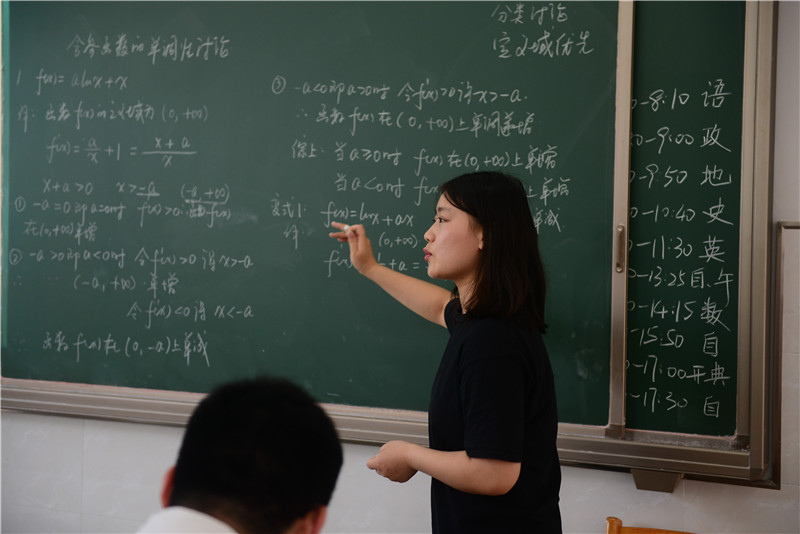 含参函数的单调性讨论
1. f(x)=alnx+x
解: 函数f(x)的定义域为(0,+∞)
f'(x)=a/x+1=x+a/x
x+a>0 x>-a (-a,+∞)
① -a=0即a=0时 f'(x)>0
在(0,+∞)单增
② -a>0即a<0时 令f'(x)>0得x>-a
(-a,+∞)单增
令f'(x)<0得x<-a
∴函数f(x)在(0,-a)上单减
分类讨论
定义域优先
③ -a<0即a>0时 令f'(x)>0得x>-a.
∴函数f(x)在(0,+∞)上单调递增
综上: 当a≥0时 f(x)在(0,+∞)上单增
当a<0时 f(x) 上单增
上单减
变式1: f(x)=lnx+ax
解: (0,+∞)
+a=
0-8:10 语
-9:00 政
0-9:50 地
0-10:40 史
-11:30 英
0-13:25自.午
0-14:15 数
-15:50 自
0-17:00开典
0-17:30 自